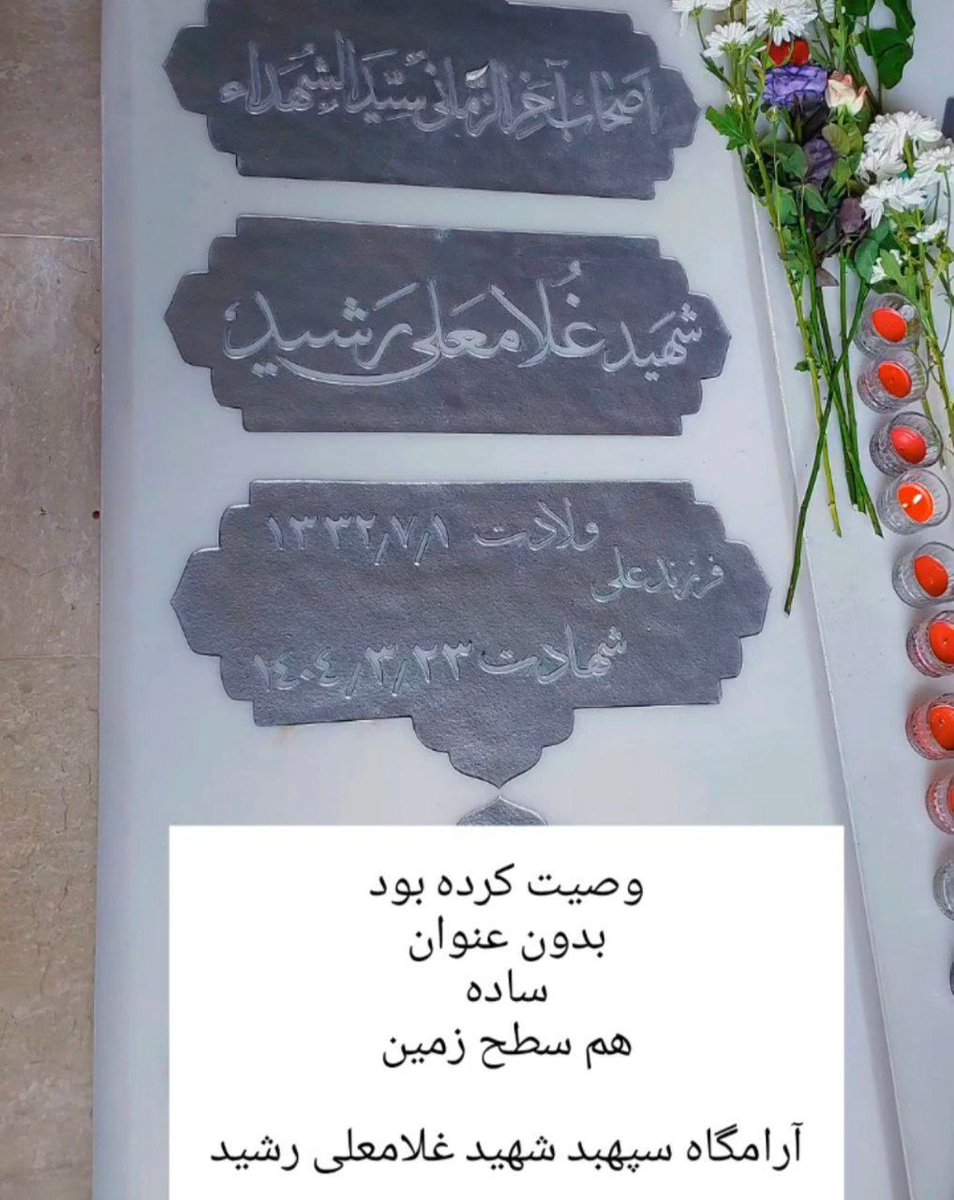 اَصْحابِ آخِرالزَّمانیِ سَیِّدَالشُّهَداء
شَهید غُلامعَلی رَشید
ولادت ۱۳۳۲/۷/۱
فرزند علی
شهادت ۱۴۰۴/۳/۲۳
وصیت کرده بود
بدون عنوان
ساده
هم سطح زمین
آرامگاه سپهبد شهید غلامعلی رشید